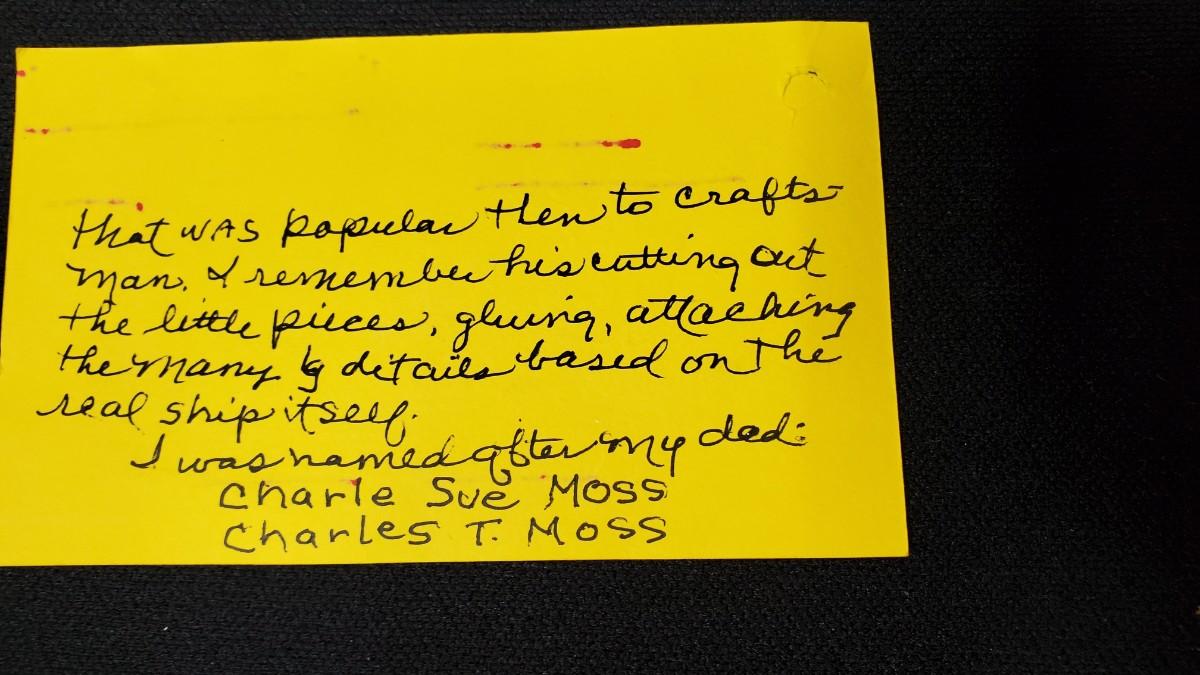 that WAS popular then to crafts-
man. I remember his cutting out
the little pieces, gluing, attaching
the many details based on the
real ship itself.
I was named after my dad:
Charle Sue Moss
Charles T. Moss